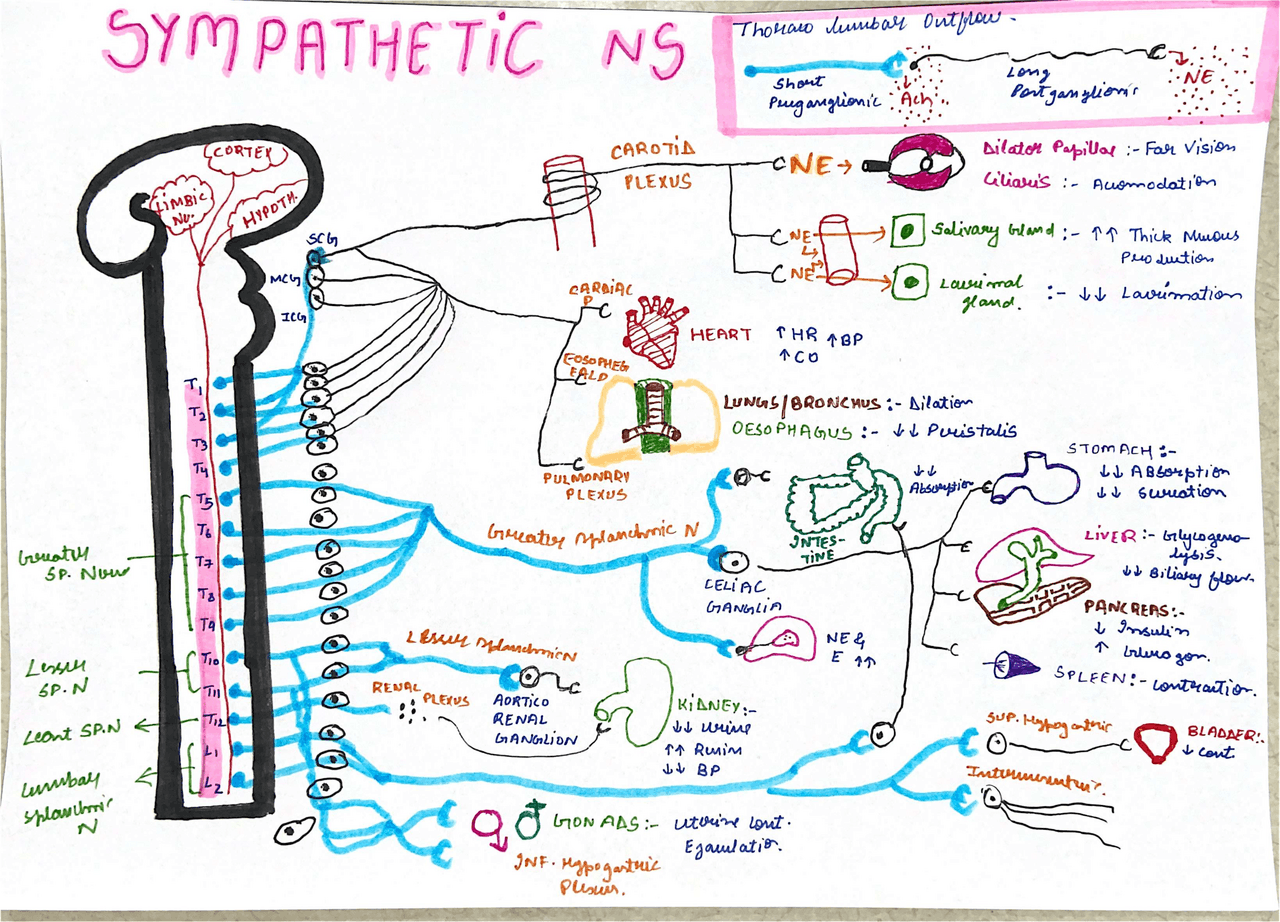 SYMPATHETIC NS
Thoraco lumbar Outflow.
Short
Preganglionic
Ach
Long
Postganglionic
NE
CORTEX
LIMBIC
NU.
HYPOTH.
SCG
MCG
ICG
CAROTID
PLEXUS
NE →
Dilator Papillar :- Far Vision
Ciliaris :- Acomodation
NE
Salivary Gland :- ↑↑ Thick Mucous
Production
NE
Lacrimal
gland. :- ↓↓ Lacrimation
CARDIAC
P
HEART
↑ HR ↑ BP
↑ CO
EOSOPHEG
EALD
LUNGS/BRONCHUS :- Dilation
OESOPHAGUS :- ↓↓ Peristalis
PULMONARY
PLEXUS
T1
T2
T3
T4
T5
T6
T7
T8
T9
T10
T11
T12
L1
L2
Greater
SP. Nerve
Lesser
SP. N
Least SP.N
Lumbar
Splanchnic
N
Greater Splanchnic N
CELIAC
GANGLIA
INTES-
TINE
↓↓
Absorption
STOMACH :-
↓↓ ABsorption
↓↓ Secretion
LIVER :- Glycogeno
lysis.
↓↓ Biliary flow.
PANCREAS:-
↓ Insulin
↑ Glucagon.
SPLEEN:- Contraction.
NE &
E ↑↑
Lesser Splanchnic N
AORTICO
RENAL
GANGLION
RENAL PLEXUS
KIDNEY:-
↓↓ Urine
↑↑ Renin
↓↓ BP
Sup. Hypogastric
BLADDER:-
↓ Cont.
Intermesenteric.
GONADS:- Uterine Cont.
Ejaculatio.
INF. Hypogastric
Plexus.